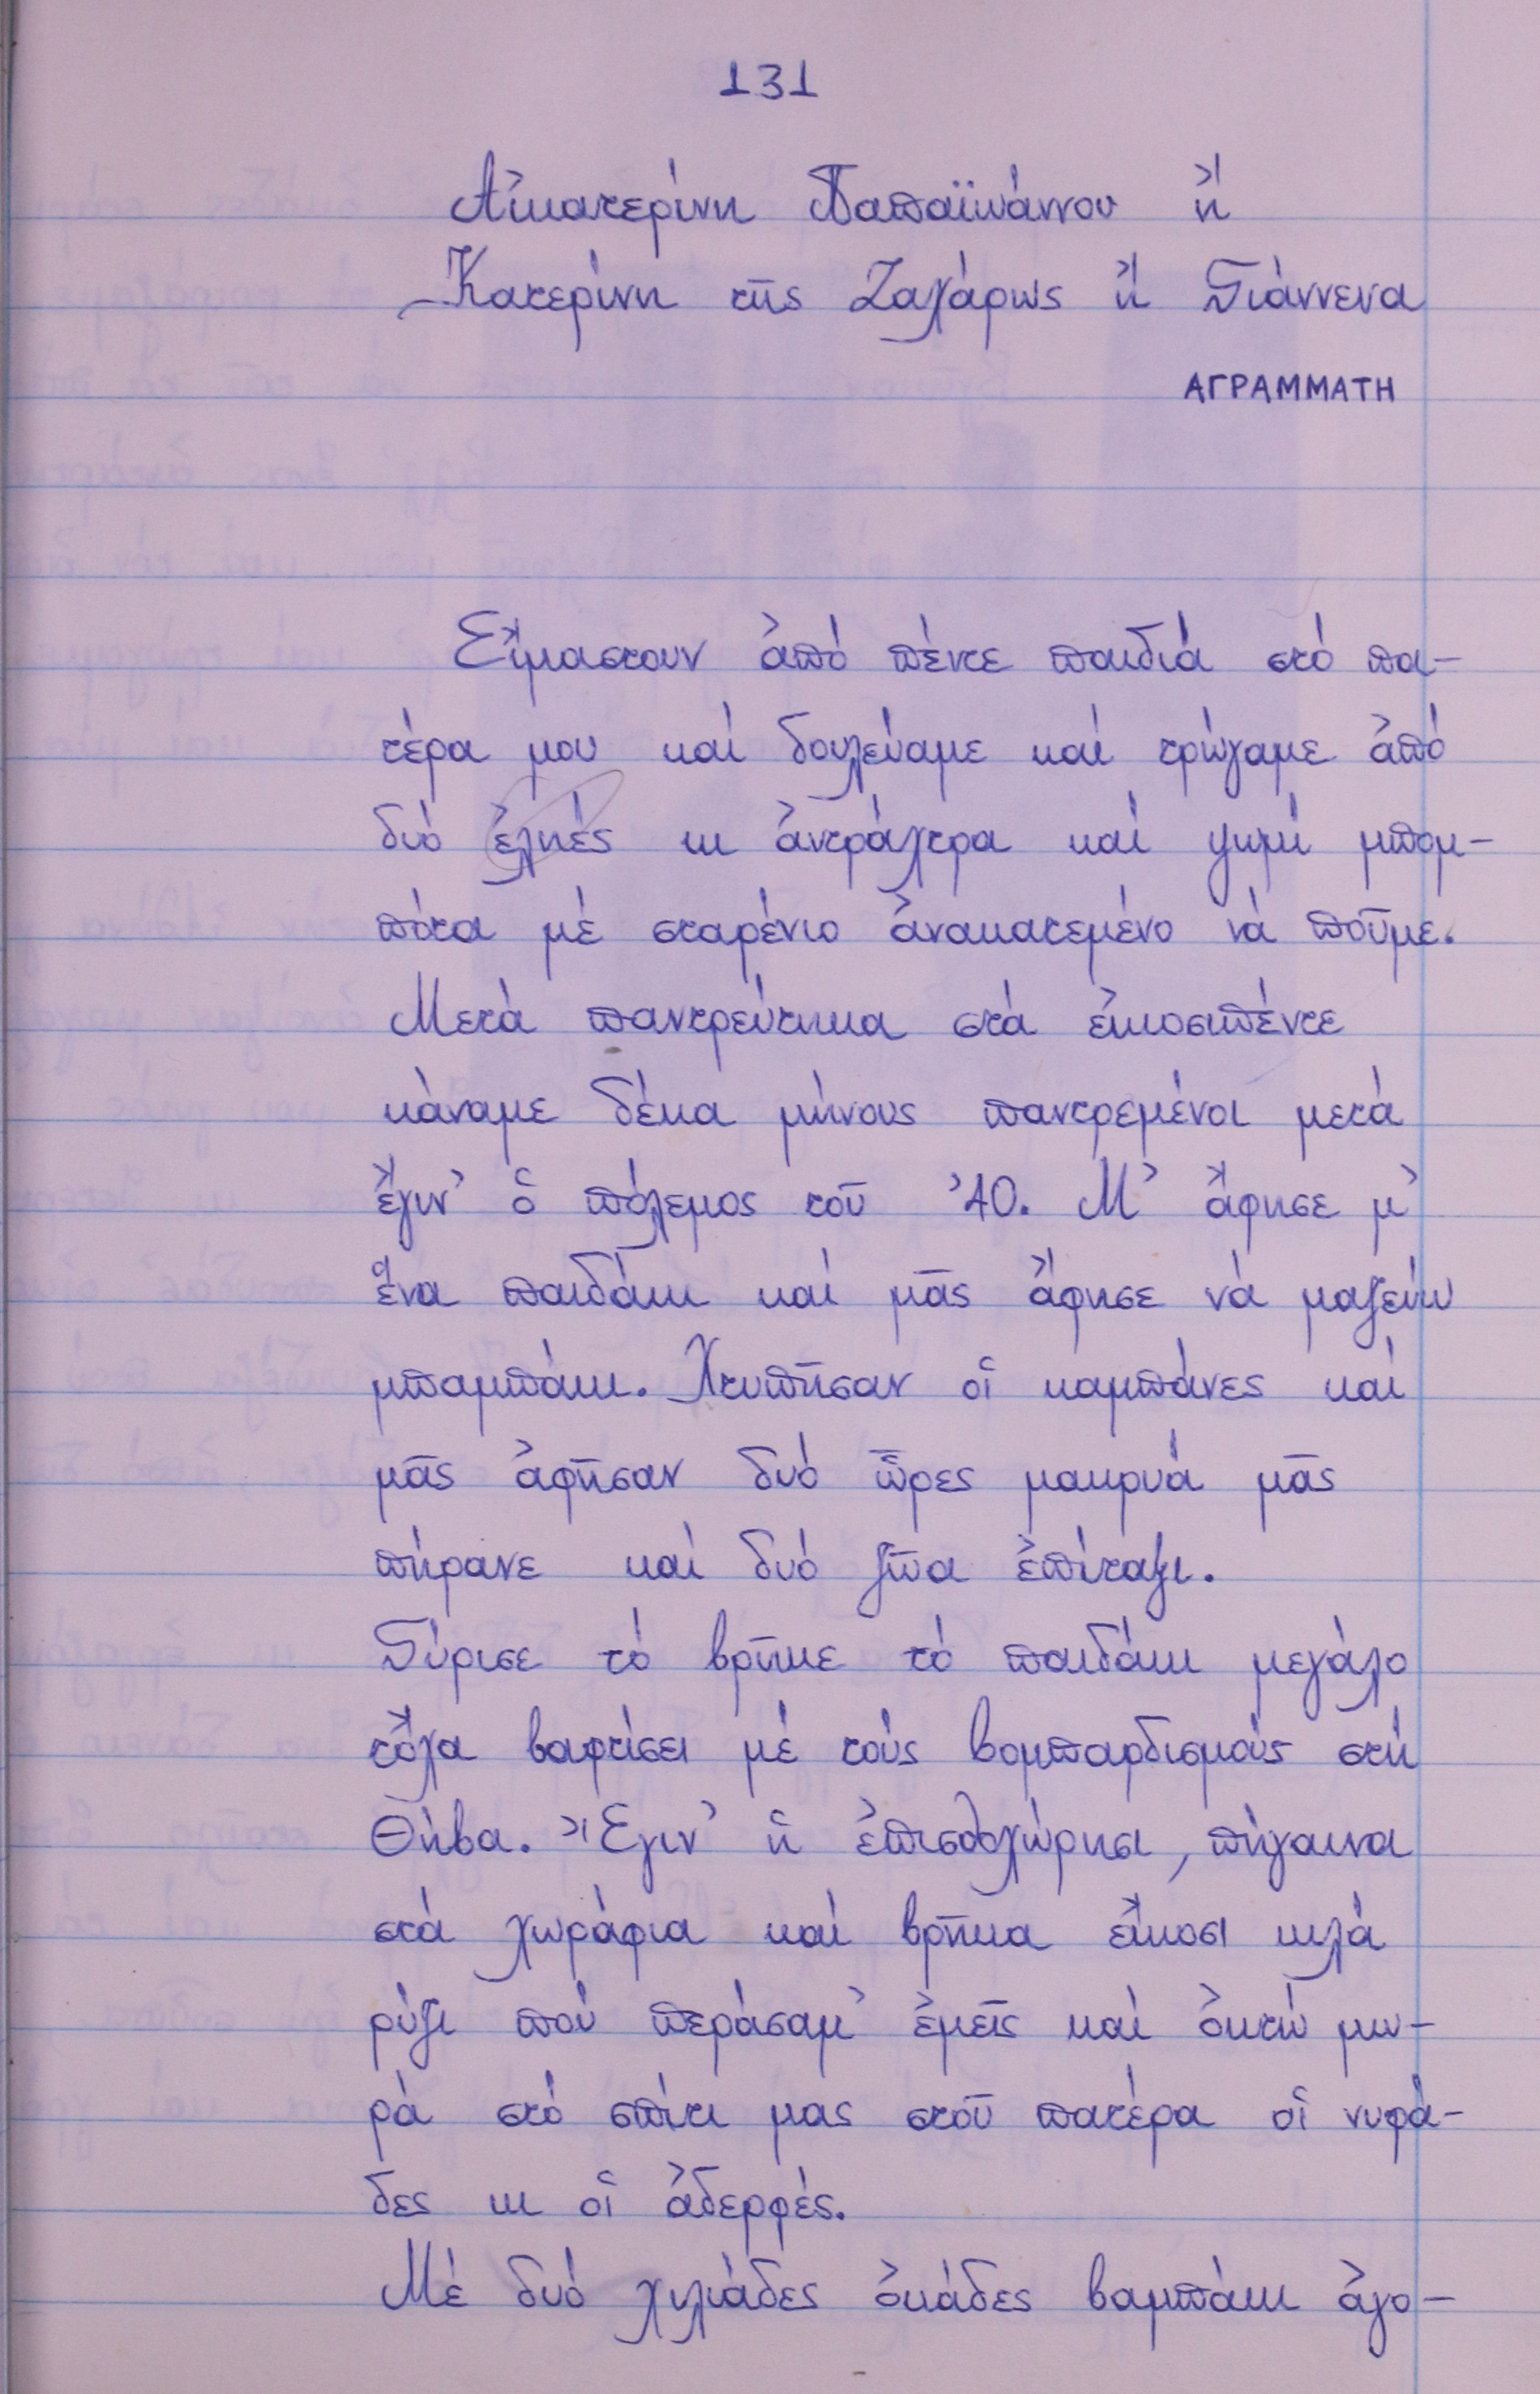 131
Αἰκατερίνη Παπαϊωάννου ἤ
Κατερίνη τῆς Ζαχάρως ἤ Γιάννενα
ΑΓΡΑΜΜΑΤΗ
Εἴμαστουν ἀπό πέντε παιδιά στό πα-
τέρα μου καί δουλεύαμε καί τρώγαμε ἀπό
δυό ἐληές κι ἀντράλτρα καί ψωμί μπομ-
πότα μέ σταρένιο ἀνακατεμένο νά ποῦμε.
Μετά παντρεύτηκα στά εἰκοσιπέντε
κάναμε δέκα μήνους παντρεμένοι μετά
ἔγιν' ὁ πόλεμος τοῦ '40. Μ' ἄφησε μ'
ἕνα παιδάκι καί μᾶς ἄφησε νά μαζεύω
μπαμπάκι. Χτυπῆσαν οἱ καμπάνες καί
μᾶς ἀφῆσαν δυό ὧρες μακρυά μᾶς
πήρανε καί δυό ζῶα ἐπίταξι.
Γύρισε τό βρῆκε τό παιδάκι μεγάλο
τὄχα βαφτίσει μέ τούς βομπαρδισμούς στή
Θήβα. Ἔγιν' ἡ ἐπισθοχώρησι, πήγαινα
στά χωράφια καί βρῆκα εἴκοσι κιλά
ρύζι πού περάσαμ' ἐμεῖς καί ὀκτώ μω-
ρά στό σπίτι μας στοῦ πατέρα οἱ νυφά-
δες κι οἱ ἀδερφές.
Μέ δυό χιλιάδες ὀκάδες βαμπάκι ἀγο-